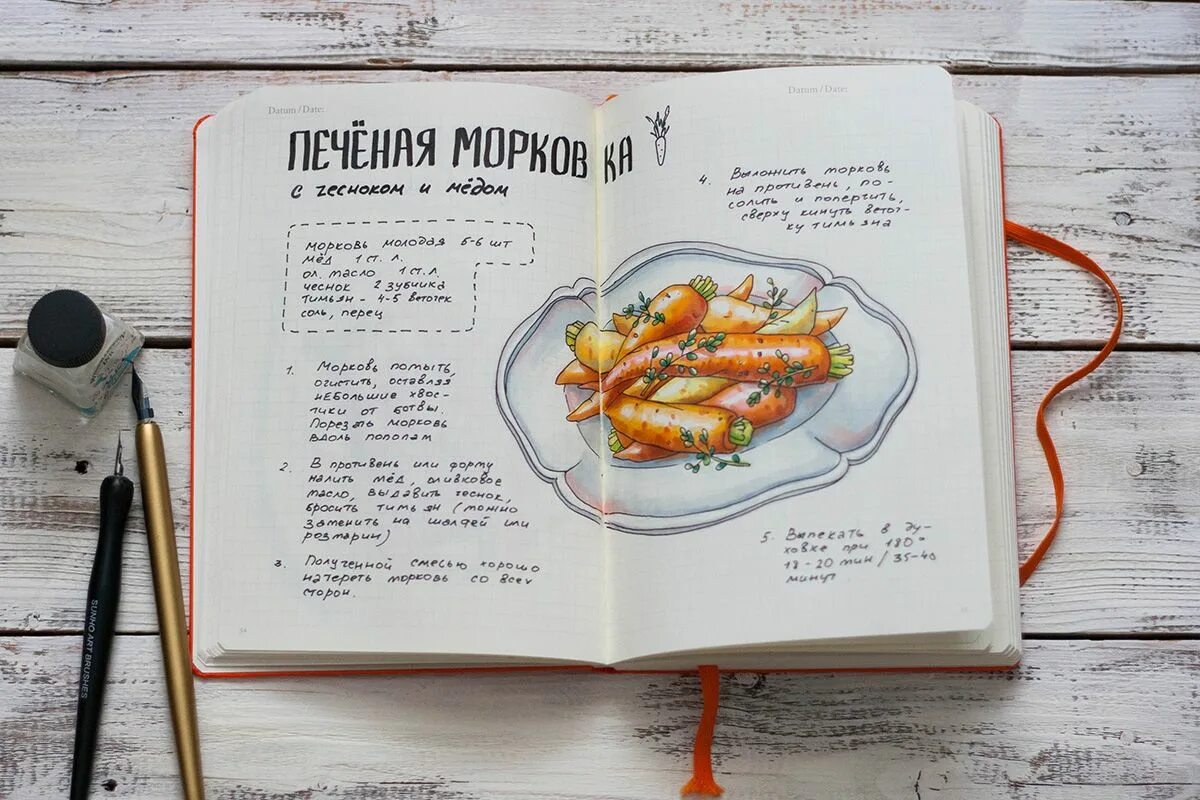 Datum / Date:
ПЕЧЁНАЯ МОРКОВКА
с чесноком и мёдом
морковь молодая 5-6 шт
мёд 1 ст. л.
ол. масло 1 ст. л.
чеснок 2 зубчика
тимьян - 4-5 веточек
соль, перец
1. Морковь помыть,
очистить, оставляя
небольшие хвос-
тики от ботвы.
Порезать морковь
вдоль пополам
2. В противень или форму
налить мёд, оливковое
масло, выдавить чеснок,
бросить тимьян (можно
заменить на шалфей или
розмарин)
3. Полученной смесью хорошо
натереть морковь со всех
сторон.
54
Datum / Date:
4. Выложить морковь
на противень, по-
солить и поперчить,
сверху кинуть веточ-
ку тимьяна
5. Выпекать в ду-
ховке при 180°
18-20 мин / 35-40
минут
SUNHO ART BRUSHES